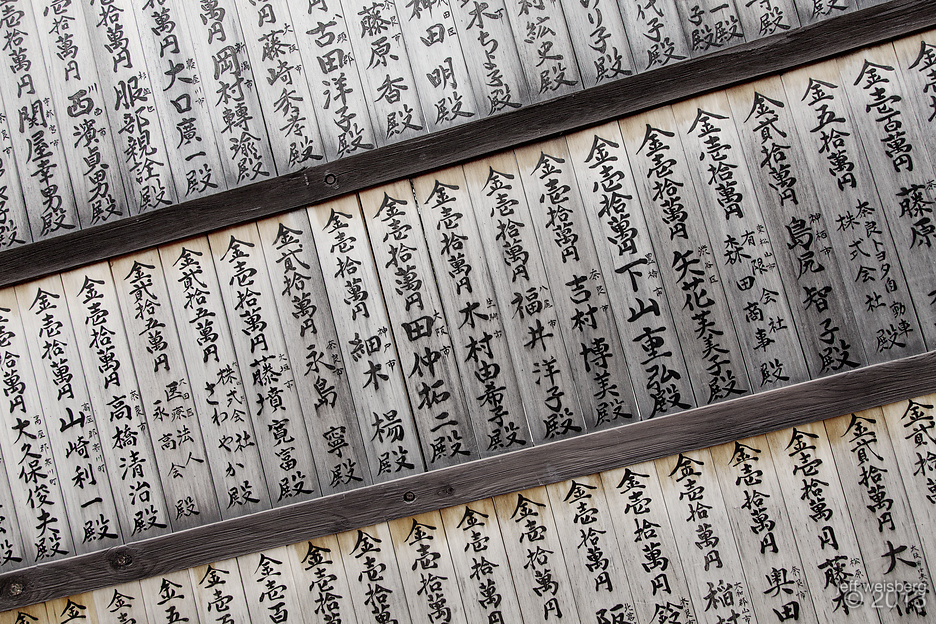 子殿
代子殿
り子殿
村紘史殿
木ちゑ子殿
神田 明殿
藤原 香殿
古田洋子殿
大阪市 藤崎秀孝殿
萬円 岡村轉瑜殿
拾萬円 大口廣一殿
壱拾萬円 服部親詮殿
壱拾萬円 川西市 西濱昌男殿
壱拾萬円 関屋幸男殿
金壱百萬円 藤原
金五拾萬円 奈良トヨタ自動車 株式会社 殿
金貳拾萬円 神栖市 島尻智子殿
金壱拾萬円 有限会社 森田商事 殿
金壱拾萬円 渋谷区 矢花芙美子殿
金壱拾萬円 下山重弘殿
金壱拾萬円 奈良市 吉村博美殿
金壱拾萬円 八尾市 福井洋子殿
金壱拾萬円 生駒市 木村由希子殿
金壱拾萬円 大阪市 田仲拓二殿
金壱拾萬円 神戸市 細木 楊殿
金貳拾萬円 奈良市 永島 寧殿
金壱拾萬円 大垣市 藤墳寛富殿
金貳拾五萬円 株式会社 さわやか殿
金貳拾五萬円 医療法人 永高会 殿
金壱拾萬円 高橋清治殿
金壱拾萬円 山崎利一殿
金壱拾萬円 大久保俊夫殿
金貳拾
金貳拾萬円 大
金壱拾萬円 藤
金壱拾萬円 奥田
金壱拾萬円 稲村
金壱拾萬円 鈴
金壱拾萬円 阪
金壱拾萬円
金壱拾萬
金壱拾萬
金壱拾
金壱拾
金壱百
金壱
金五
jeff weisberg
© 2013